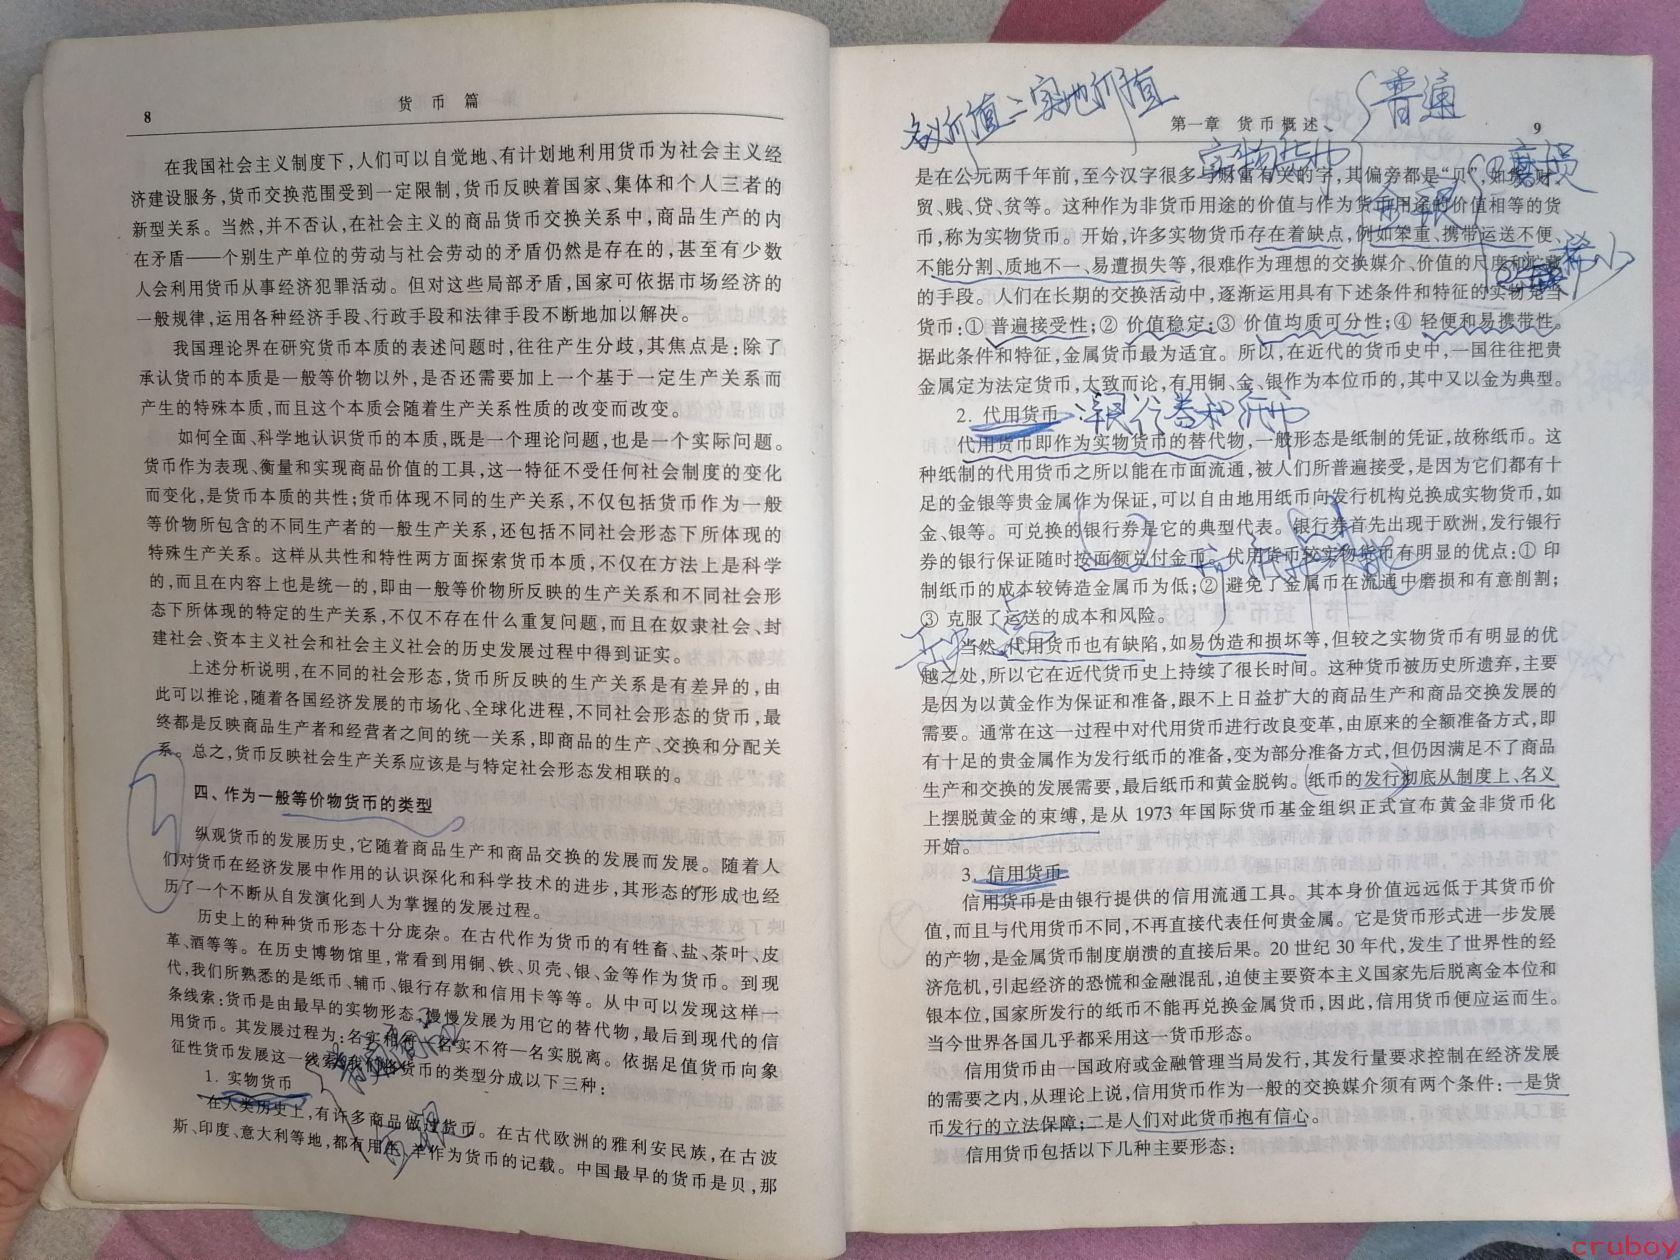 8
货 币 篇
在我国社会主义制度下,人们可以自觉地、有计划地利用货币为社会主义经
济建设服务,货币交换范围受到一定限制,货币反映着国家、集体和个人三者的
新型关系。当然,并不否认,在社会主义的商品货币交换关系中,商品生产的内
在矛盾——个别生产单位的劳动与社会劳动的矛盾仍然是存在的,甚至有少数
人会利用货币从事经济犯罪活动。但对这些局部矛盾,国家可依据市场经济的
一般规律,运用各种经济手段、行政手段和法律手段不断地加以解决。
我国理论界在研究货币本质的表述问题时,往往产生分歧,其焦点是:除了
承认货币的本质是一般等价物以外,是否还需要加上一个基于一定生产关系而
产生的特殊本质,而且这个本质会随着生产关系性质的改变而改变。
如何全面、科学地认识货币的本质,既是一个理论问题,也是一个实际问题。
货币作为表现、衡量和实现商品价值的工具,这一特征不受任何社会制度的变化
而变化,是货币本质的共性;货币体现不同的生产关系,不仅包括货币作为一般
等价物所包含的不同生产者的一般生产关系,还包括不同社会形态下所体现的
特殊生产关系。这样从共性和特性两方面探索货币本质,不仅在方法上是科学
的,而且在内容上也是统一的,即由一般等价物所反映的生产关系和不同社会形
态下所体现的特定的生产关系,不仅不存在什么重复问题,而且在奴隶社会、封
建社会、资本主义社会和社会主义社会的历史发展过程中得到证实。
上述分析说明,在不同的社会形态,货币所反映的生产关系是有差异的,由
此可以推论,随着各国经济发展的市场化、全球化进程,不同社会形态的货币,最
终都是反映商品生产者和经营者之间的统一关系,即商品的生产、交换和分配关
系。总之,货币反映社会生产关系应该是与特定社会形态发相联的。
四、作为一般等价物货币的类型
纵观货币的发展历史,它随着商品生产和商品交换的发展而发展。随着人
们对货币在经济发展中作用的认识深化和科学技术的进步,其形态的形成也经
历了一个不断从自发演化到人为掌握的发展过程。
历史上的种种货币形态十分庞杂。在古代作为货币的有牲畜、盐、茶叶、皮
革、酒等等。在历史博物馆里,常看到用铜、铁、贝壳、银、金等作为货币。到现
代,我们所熟悉的是纸币、辅币、银行存款和信用卡等等。从中可以发现这样一
条线索:货币是由最早的实物形态,慢慢发展为用它的替代物,最后到现代的信
用货币。其发展过程为:名实相符—名实不符—名实脱离。依据足值货币向象
征性货币发展这一线索,我们将货币的类型分成以下三种:
1. 实物货币
在人类历史上,有许多商品做过货币。在古代欧洲的雅利安民族,在古波
斯、印度、意大利等地,都有用牛、羊作为货币的记载。中国最早的货币是贝,那
名义价值=实地价值
普通
第一章 货币概述
9
实物货币
磨损
金银
稀少
是在公元两千年前,至今汉字很多与财富有关的字,其偏旁都是“贝”,如货、财、
贸、贱、贷、贫等。这种作为非货币用途的价值与作为货币用途的价值相等的货
币,称为实物货币。开始,许多实物货币存在着缺点,例如笨重、携带运送不便、
不能分割、质地不一、易遭损失等,很难作为理想的交换媒介、价值的尺度和贮藏
的手段。人们在长期的交换活动中,逐渐运用具有下述条件和特征的实物充当
货币:① 普遍接受性;② 价值稳定;③ 价值均质可分性;④ 轻便和易携带性。
据此条件和特征,金属货币最为适宜。所以,在近代的货币史中,一国往往把贵
金属定为法定货币,大致而论,有用铜、金、银作为本位币的,其中又以金为典型。
2. 代用货币
:银行券和纸币
代用货币即作为实物货币的替代物,一般形态是纸制的凭证,故称纸币。这
种纸制的代用货币之所以能在市面流通,被人们所普遍接受,是因为它们都有十
足的金银等贵金属作为保证,可以自由地用纸币向发行机构兑换成实物货币,如
金、银等。可兑换的银行券是它的典型代表。银行券首先出现于欧洲,发行银行
券的银行保证随时按面额兑付金币。代用货币较实物货币有明显的优点:① 印
制纸币的成本较铸造金属币为低;② 避免了金属币在流通中磨损和有意削割;
③ 克服了运送的成本和风险。
当然,代用货币也有缺陷,如易伪造和损坏等,但较之实物货币有明显的优
越之处,所以它在近代货币史上持续了很长时间。这种货币被历史所遗弃,主要
是因为以黄金作为保证和准备,跟不上日益扩大的商品生产和商品交换发展的
需要。通常在这一过程中对代用货币进行改良变革,由原来的全额准备方式,即
有十足的贵金属作为发行纸币的准备,变为部分准备方式,但仍因满足不了商品
生产和交换的发展需要,最后纸币和黄金脱钩。纸币的发行彻底从制度上、名义
上摆脱黄金的束缚,是从 1973 年国际货币基金组织正式宣布黄金非货币化
开始。
3. 信用货币
信用货币是由银行提供的信用流通工具。其本身价值远远低于其货币价
值,而且与代用货币不同,不再直接代表任何贵金属。它是货币形式进一步发展
的产物,是金属货币制度崩溃的直接后果。20 世纪 30 年代,发生了世界性的经
济危机,引起经济的恐慌和金融混乱,迫使主要资本主义国家先后脱离金本位和
银本位,国家所发行的纸币不能再兑换金属货币,因此,信用货币便应运而生。
当今世界各国几乎都采用这一货币形态。
信用货币由一国政府或金融管理当局发行,其发行量要求控制在经济发展
的需要之内,从理论上说,信用货币作为一般的交换媒介须有两个条件:一是货
币发行的立法保障;二是人们对此货币抱有信心。
信用货币包括以下几种主要形态:
cruboy